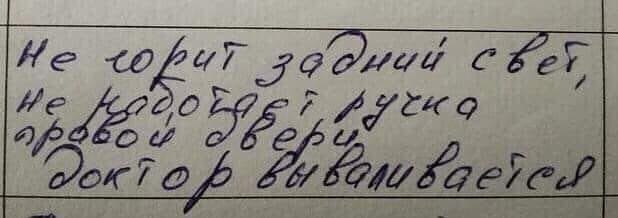 не горит задний свет,
не работает ручка
правой двери,
доктор вываливается